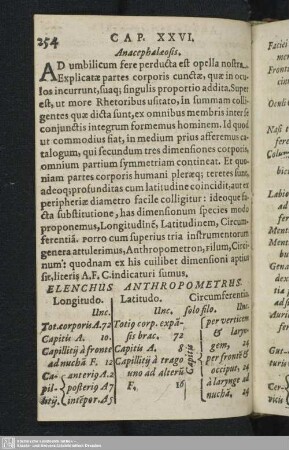 254
CAP. XXVI.
Anacephalæosis.
AD umbilicum fere perducta est opella nostra
Explicatæ partes corporis cunctæ, quæ in ocu-
los incurrunt, suaq; singulis proportio addita. Super
est, ut more Rhetoribus usitato, in summam colli-
gentes quæ dicta sunt, ex omnibus membris inter se
conjunctis integrum formemus hominem. Id quod
ut commodius fiat, in medium prius afferemus ca-
talogum, qui secundum tres dimensiones corporis,
omnium partium symmetriam contineat. Et quo-
niam partes corporis humani pleræq; teretes sunt,
adeoq; profunditas cum latitudine coincidit, aut ex
peripheriæ diametro facile colligitur: ideoque fa-
cta substitutione, has dimensionum species modo
proponemus, Longitudinē, Latitudinem, Circum-
ferentiā. Porro cum superius tria instrumentorum
genera attulerimus, Anthropometron, Filum, Circi-
num: quodnam ex his cuilibet dimensioni aptius
sit, literis A.F.C. indicaturi sumus.
ELENCHUS ANTHROPOMETRUS.
Longitudo. Latitudo. Circumferentia.
Unc. Unc. solo filo. Unc.
Tot.corporis A.72 Totiꝰ corp. expā- per verticem
Capitis A. 10 sis brac. 72 & laryn-
Capillitij à fronte Capitis A. 8 gem, 24
ad nuchā F. 12 Capillitij à trago per frontē &
Ca- anteriꝰ A.2 uno ad alterū occiput, 24
pil- posteriꝰ A.7 F. 16 à larynge ad
litij, intēpor. A.5 nuchā, 24